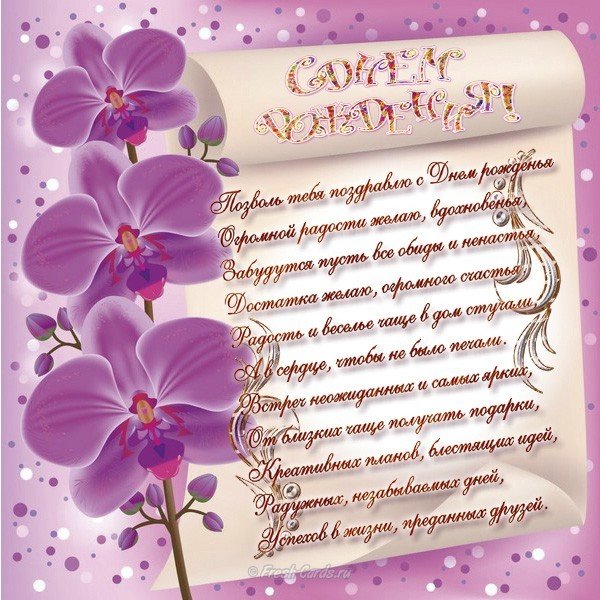 С ДНЕМ
РОЖДЕНИЯ!
Позволь тебя поздравлю с Днем рожденья
Огромной радости желаю, вдохновенья,
Забудутся пусть все обиды и ненастья,
Достатка желаю, огромного счастья
Радость и веселье чаще в дом стучали
А в сердце, чтобы не было печали.
Встреч неожиданных и самых ярких,
От близких чаще получать подарки,
Креативных планов, блестящих идей,
Радужных, незабываемых дней,
Успехов в жизни, преданных друзей.
© Fresh-Cards.ru